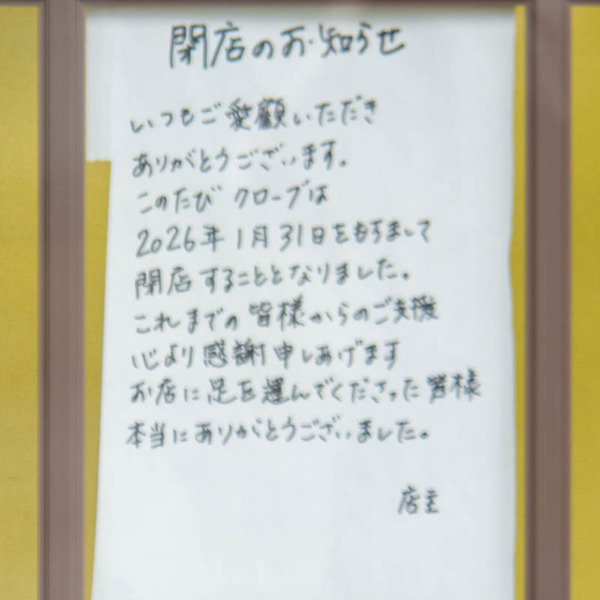 閉店のお知らせ
いつもご愛顧いただき
ありがとうございます。
このたび クローブは
2026年1月31日をもちまして
閉店することとなりました。
これまでの皆様からのご支援
心より感謝申しあげます
お店に足を運んでくださった皆様
本当にありがとうございました。
店主